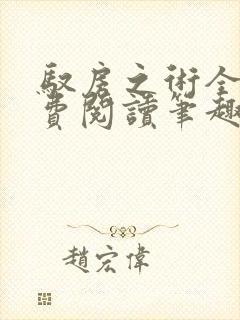 馭房之術全
費閱讀筆趣
趙宏偉